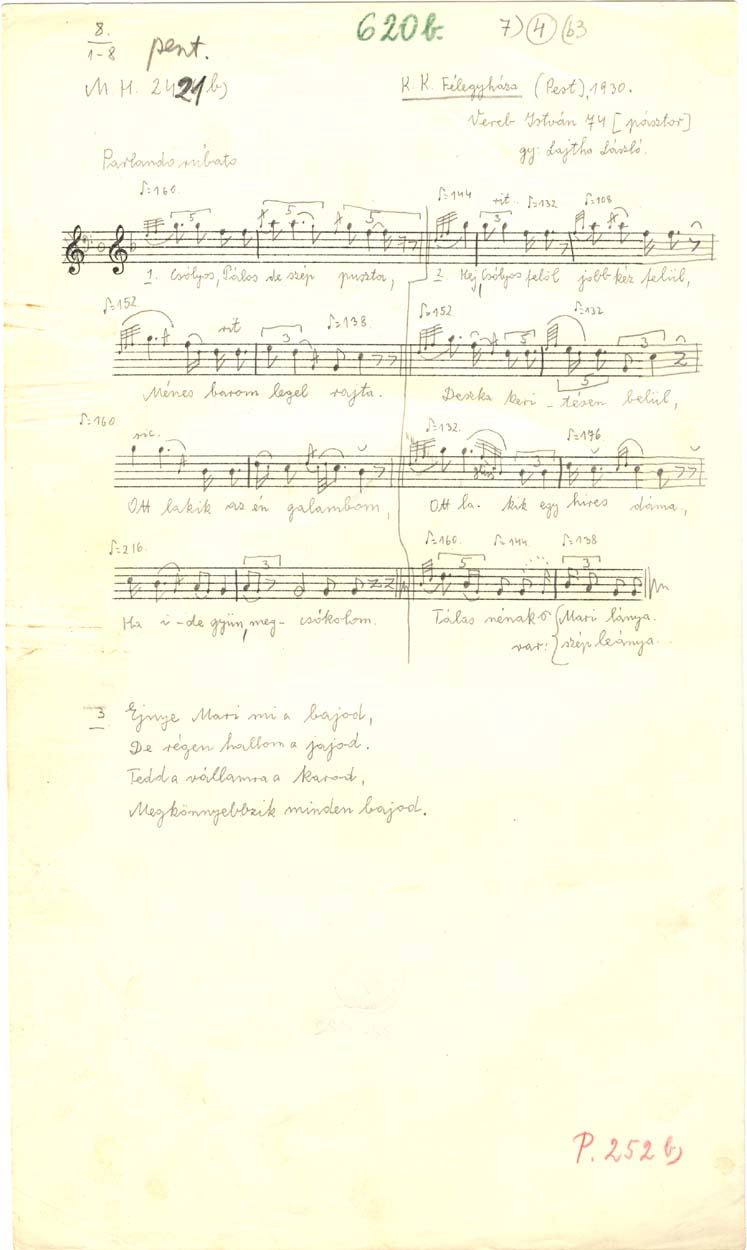 8.
1-8
pent.
620b.
7) 4 (b3
M. H. 2421 b)
K. K. Félegyháza (Pest), 1930.
Vereb István 74 [pásztor]
gy: Lajtha László.
Parlando rubato
♪=160. ♪=144 rit. ♪=132 ♪=108
5 5 5 3
1. Csólyos, Pálos de szép puszta, 2. Hej, Csólyos felöl jobb kéz felül,
♪=152. rit ♪=138. ♪=152 ♪=132
3 5 3 5
Ménes barom legel rajta. Deszka keri-tésen belül,
♪=160. sic. ♪=132. ♪=176.
gliss. 3
Ott lakik az én galambom, Ott la-kik egy hires dáma,
♪=216. ♪=160. ♪=144. ♪=138
3 5 3
Ha i-de gyün, meg-csókolom. Tálas nénak ő Mari lánya.
var: szép leánya.
3 Ejnye Mari mi a bajod,
De régen hallom a jajod.
Tedd a vállamra a karod,
Megkönnyebbzik minden bajod.
P. 252 b)